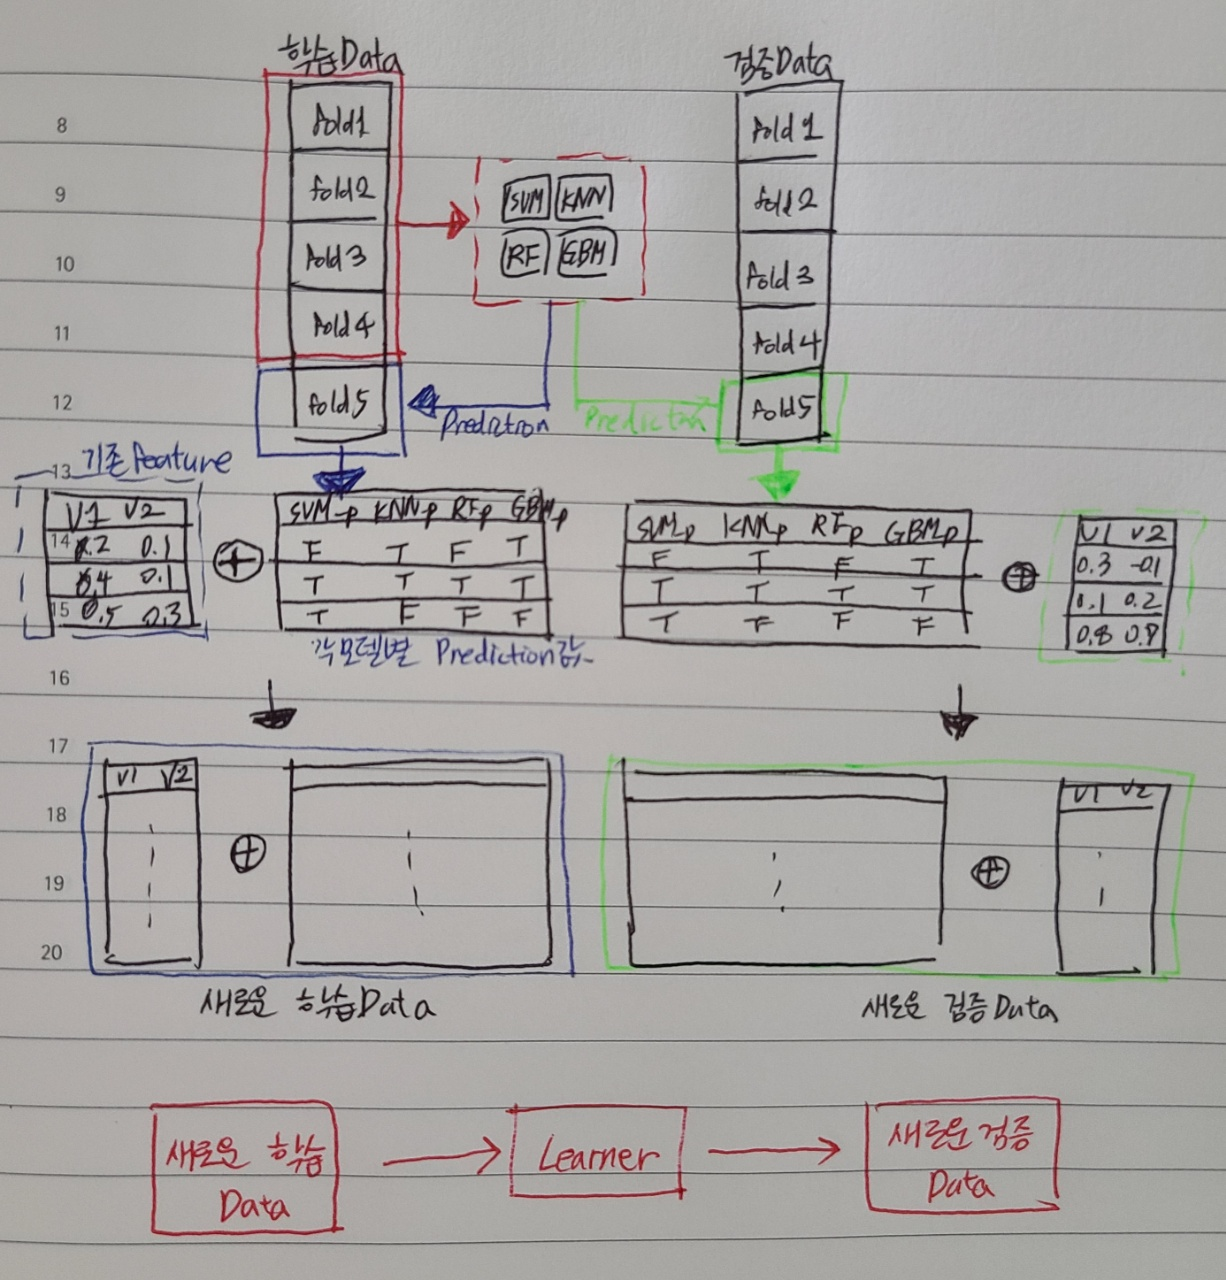 학습Data
검증Data
8
fold1
fold 1
9
fold2
SVM KNN
fold 2
10
fold 3
RF GBM
fold 3
11
fold 4
fold 4
12
fold5
Prediction
Prediction
fold5
13
기존 feature
V1 V2
SVM_p KNN_p RF_p GBM_p
SVM_p KNN_p RF_p GBM_p
V1 V2
14
0.2 0.1
F T F T
F T F T
0.3 -0.1
0.4 0.1
T T T T
T T T T
0.1 0.2
15
0.5 0.3
T F F F
T F F F
0.8 0.9
각 모델별 Prediction값
16
17
V1 V2
V1 V2
18
19
20
새로운 학습Data
새로운 검증Data
새로운 학습
Data
Learner
새로운 검증
Data